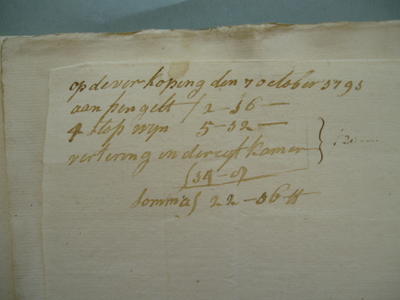 op de verkoping den 7 october 1793
aan pen gelt ƒ 2 - 16 -
4 flés wyn 5 - 12 -
vertering in der eyt kamer
ƒ 14 - 8
Somma ƒ 22 - 16 #